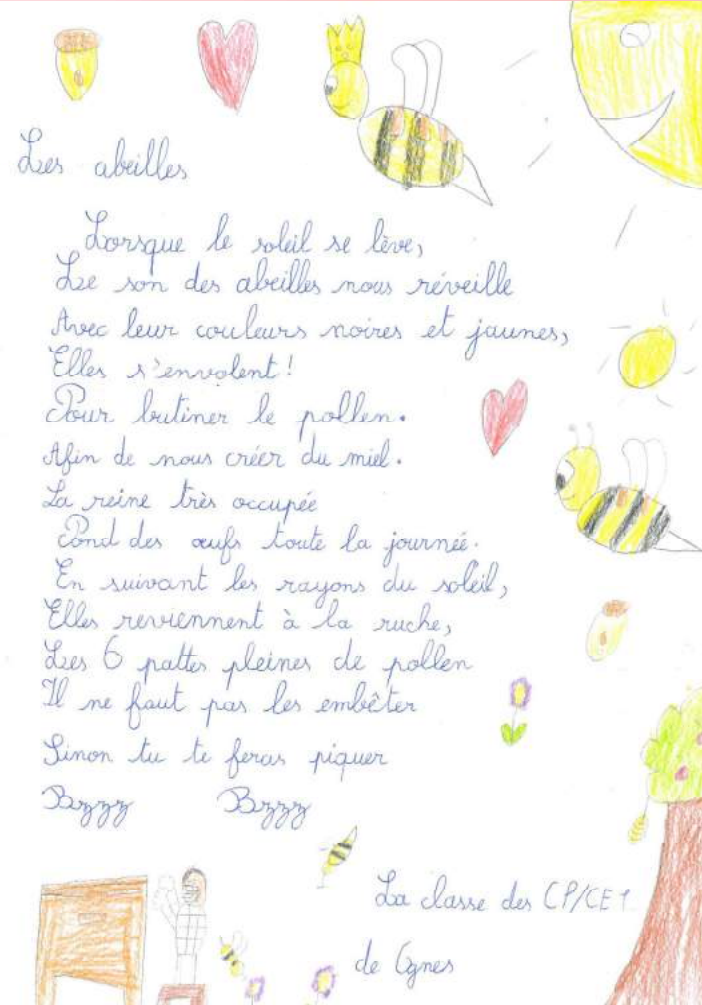 Les abeilles
Lorsque le soleil se lève,
Le son des abeilles nous réveille
Avec leur couleurs noires et jaunes,
Elles s'envolent !
Pour butiner le pollen.
Afin de nous créer du miel.
La reine très occupée
Pond des œufs toute la journée.
En suivant les rayons du soleil,
Elles reviennent à la ruche,
Les 6 pattes pleines de pollen
Il ne faut pas les embêter
Sinon tu te feras piquer
Bzzz Bzzz
La classe des CP/CE1
de Ognes